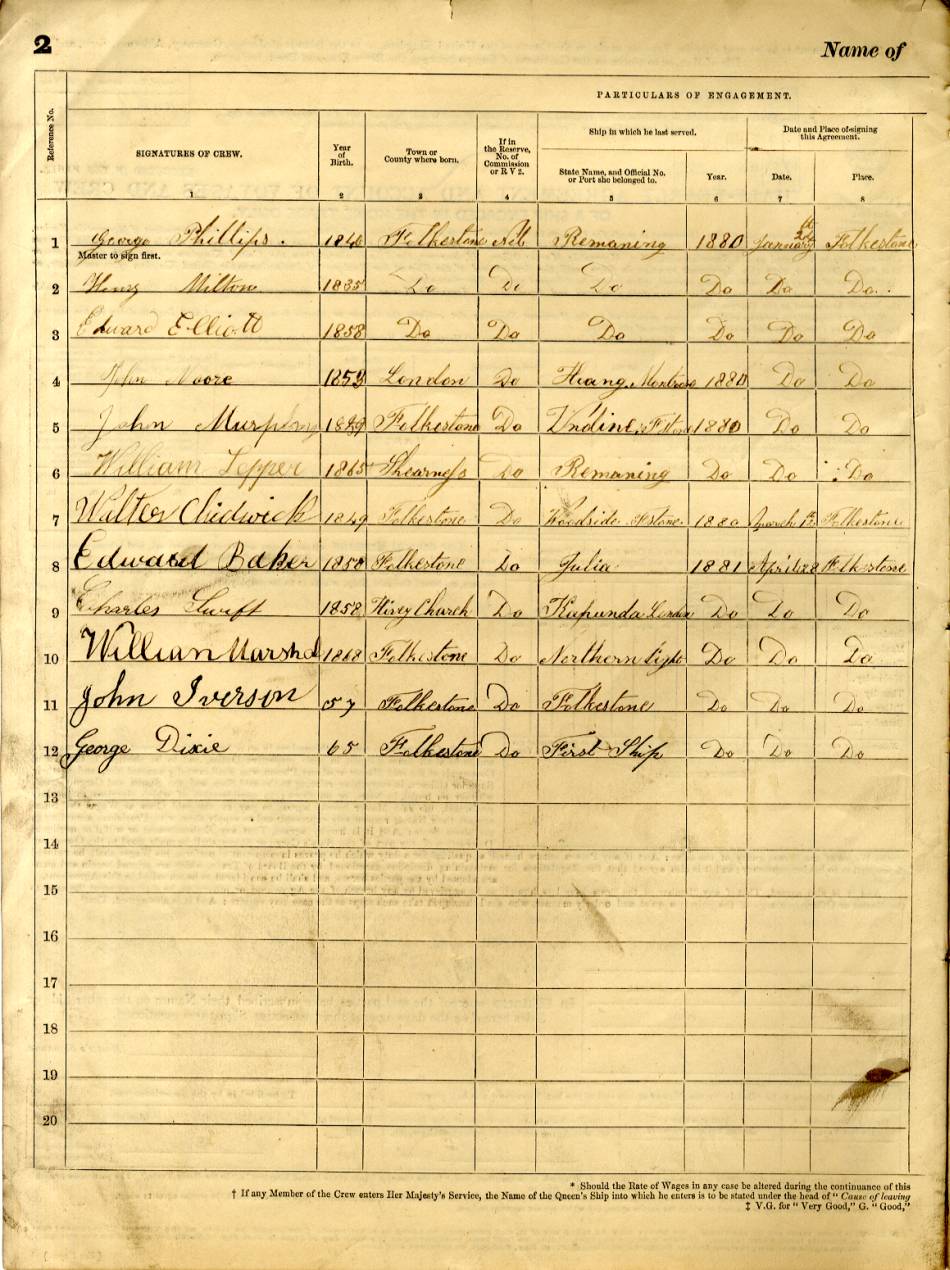 2 Name of
PARTICULARS OF ENGAGEMENT.
Reference No.
SIGNATURES OF CREW.
Year of Birth.
Town or County where born.
If in the Reserve, No. of Commission or R V 2.
Ship in which he last served.
Date and Place of signing this Agreement.
State Name, and Official No. or Port she belonged to.
Year.
Date.
Place.
1 2 3 4 5 6 7 8
1 George Phillips. 1840 Folkestone Nil Remaning 1880 January Folkestone
Master to sign first.
2 Henry Milton 1835 Do Do Do Do Do Do
3 Edward Elliott 1858 Do Do Do Do Do Do
4 John Moore 1853 London Do Montrose 1880 Do Do
5 John Murphy Folkestone Do Undine 1880 Do Do
6 William Lepper 1865 Shearness Do Remaning Do Do Do
7 Walter Chidwick 1849 Folkestone Do Woodside 1880 March Folkestone
8 Edward Baker 1850 Folkestone Do Julia 1881 April 28 Folkestone
9 Charles Swift 1858 Do Kapunda London Do Do Do
10 William Marshal 1868 Folkestone Do Northern Light Do Do Do
11 John Iverson 57 Folkestone Do Folkestone Do Do Do
12 George Dixie 65 Folkestone Do First Ship Do Do Do
13
14
15
16
17
18
19
20
* Should the Rate of Wages in any case be altered during the continuance of this
† If any Member of the Crew enters Her Majesty's Service, the Name of the Queen's Ship into which he enters is to be stated under the head of "Cause of leaving
‡ V.G. for "Very Good," G. "Good,"